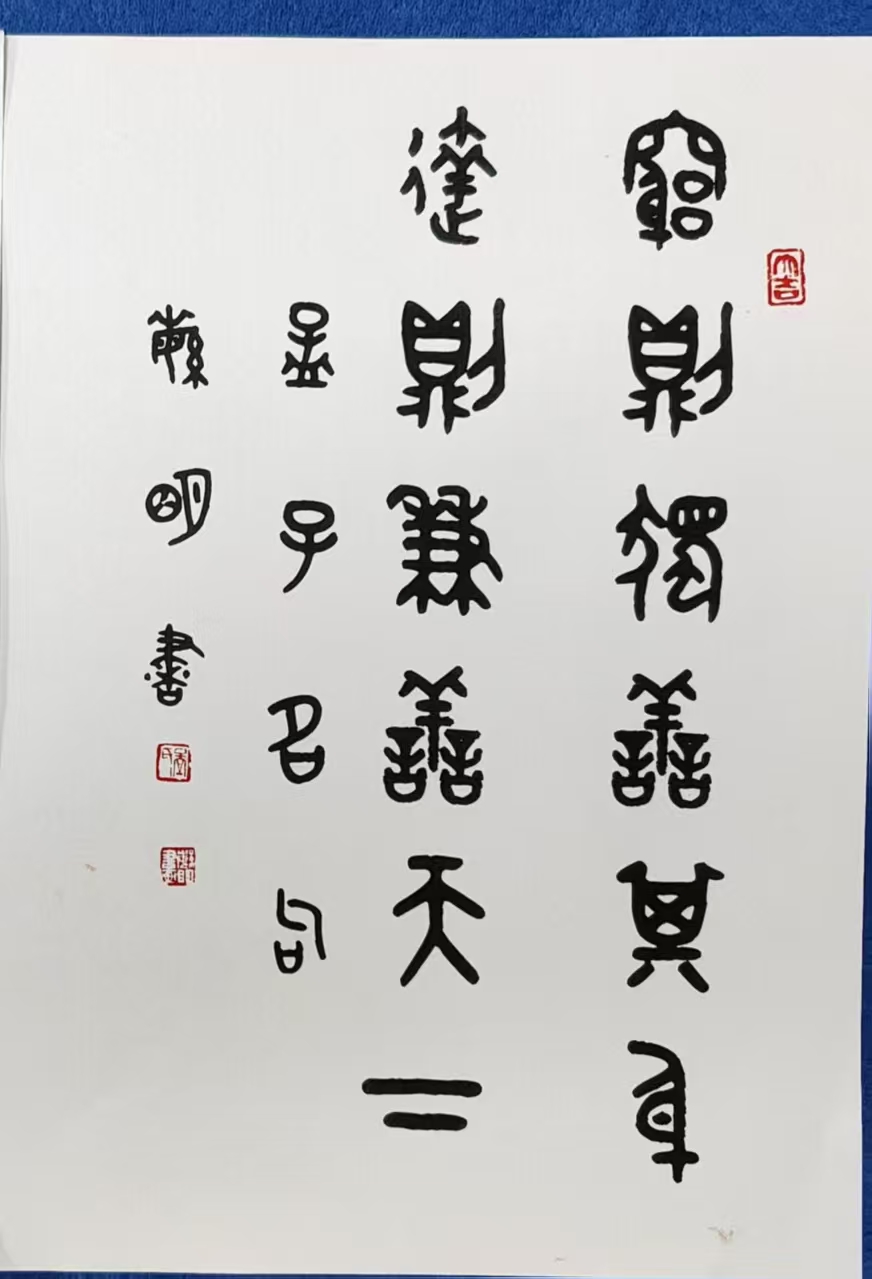 大吉
窮則獨善其身
達則兼善天下
孟子名句
明書